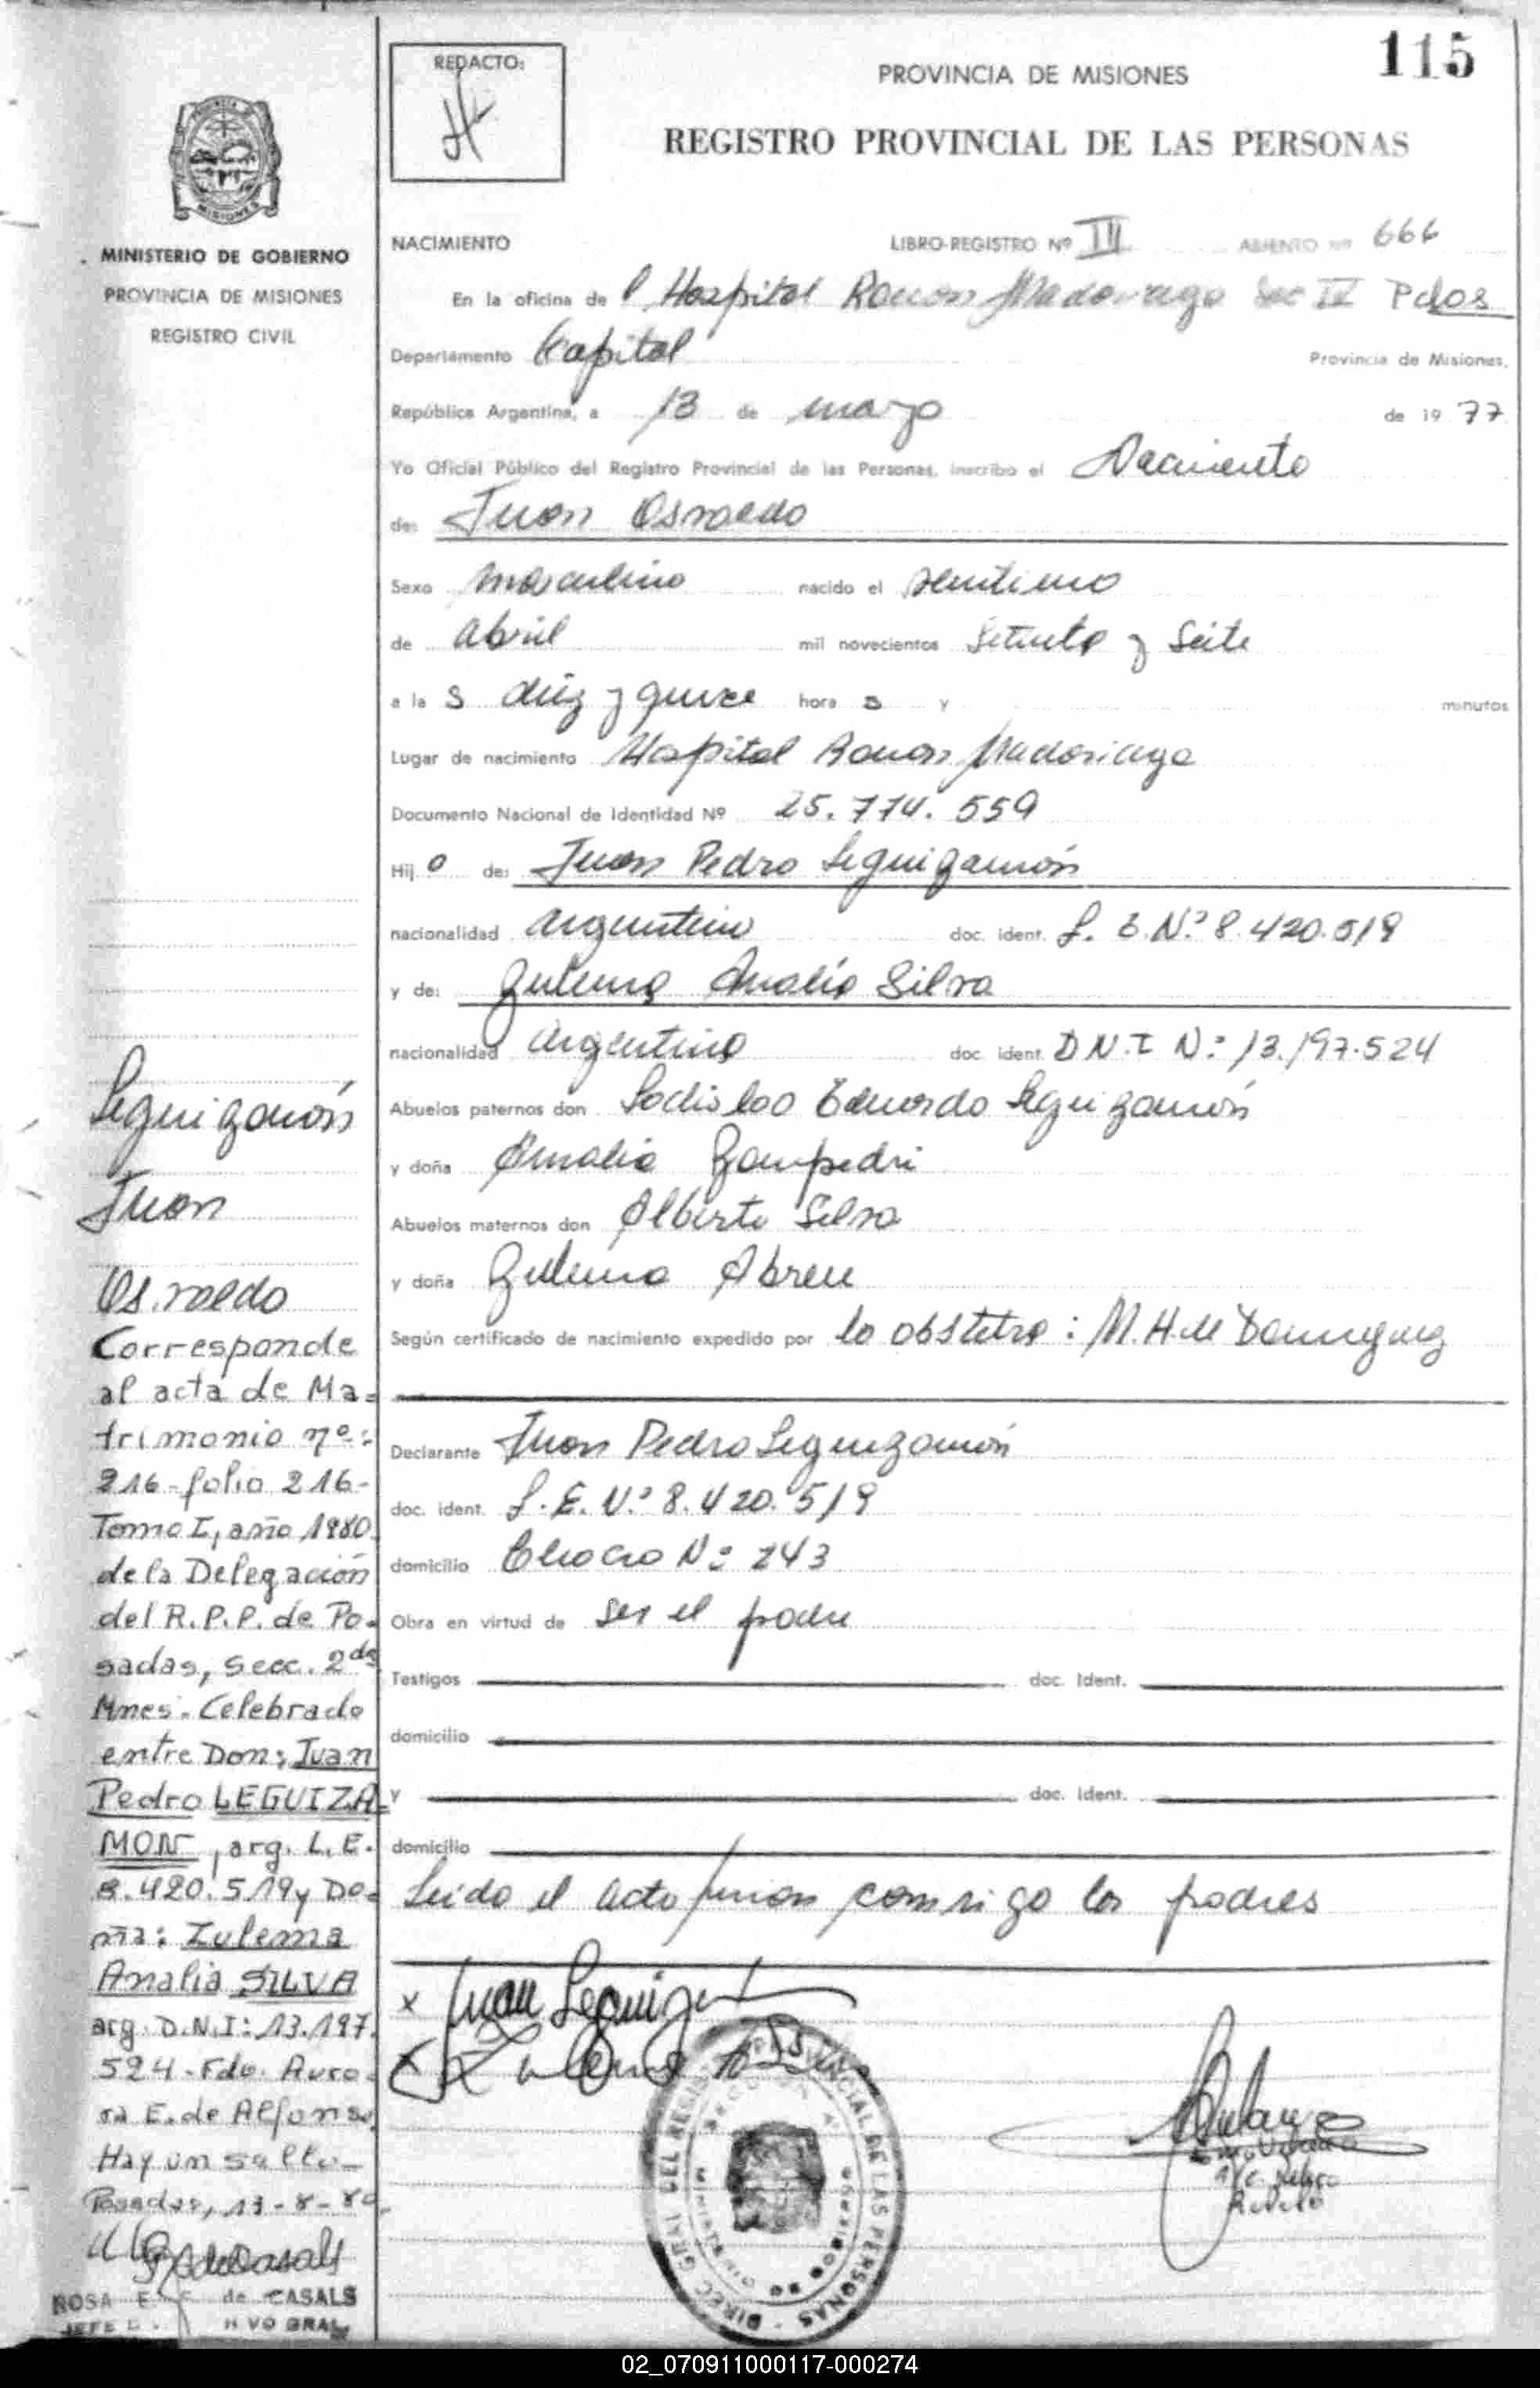 115
REDACTO:
PROVINCIA DE MISIONES
REGISTRO PROVINCIAL DE LAS PERSONAS
MISIONES
MINISTERIO DE GOBIERNO
PROVINCIA DE MISIONES
REGISTRO CIVIL
NACIMIENTO LIBRO-REGISTRO Nº III ASIENTO Nº 666
En la oficina de l Hospital Ramon Madariaga Sec IV Pdas
Departamento Capital Provincia de Misiones,
República Argentina, a 13 de mayo de 19 77
Yo Oficial Público del Registro Provincial de las Personas, inscribo el Nacimiento
de: Juan Osvaldo
Sexo masculino nacido el
de abril mil novecientos Setenta y Siete
a la s diez y quince hora s y minutos
Lugar de nacimiento Hospital Ramon Madariaga
Documento Nacional de Identidad Nº 25.774.559
Hij o de: Juan Pedro Leguizamón
nacionalidad argentino doc. ident. L. E. Nº 8.420.519
y de: Zulema Analia Silva
nacionalidad argentina doc. ident. D N.I N: 13.197.524
Abuelos paternos don Ladislao Eduardo Leguizamón
y doña Amalia Zampedri
Abuelos maternos don Alberto Silva
y doña Zulema Abreu
Según certificado de nacimiento expedido por la obstetra: M.H. de Dominguez
Declarante Juan Pedro Leguizamón
doc. ident. L.E. Nº 8.420.519
domicilio Chaco Nº 243
Obra en virtud de ser el padre
Testigos doc. Ident.
domicilio
y doc. Ident.
domicilio
Leido el acta firman conmigo los padres
Leguizamón
Juan
Osvaldo
Corresponde
al acta de Ma-
trimonio nº:
216-folio 216-
Tomo I, año 1980
de la Delegación
del R.P.P. de Po-
sadas, Secc. 2da
Mnes. Celebrado
entre Don: Juan
Pedro LEGUIZA-
MON, arg. L.E.
8.420.519 y Do-
ña: Zulema
Analia SILVA
arg. D.N.I: 13.197.
524-Fdo. Auro-
ra E. de Alfonso
Hay un sello-
Posadas, 13-8-80
ROSA E. de CASALS
02_070911000117-000274